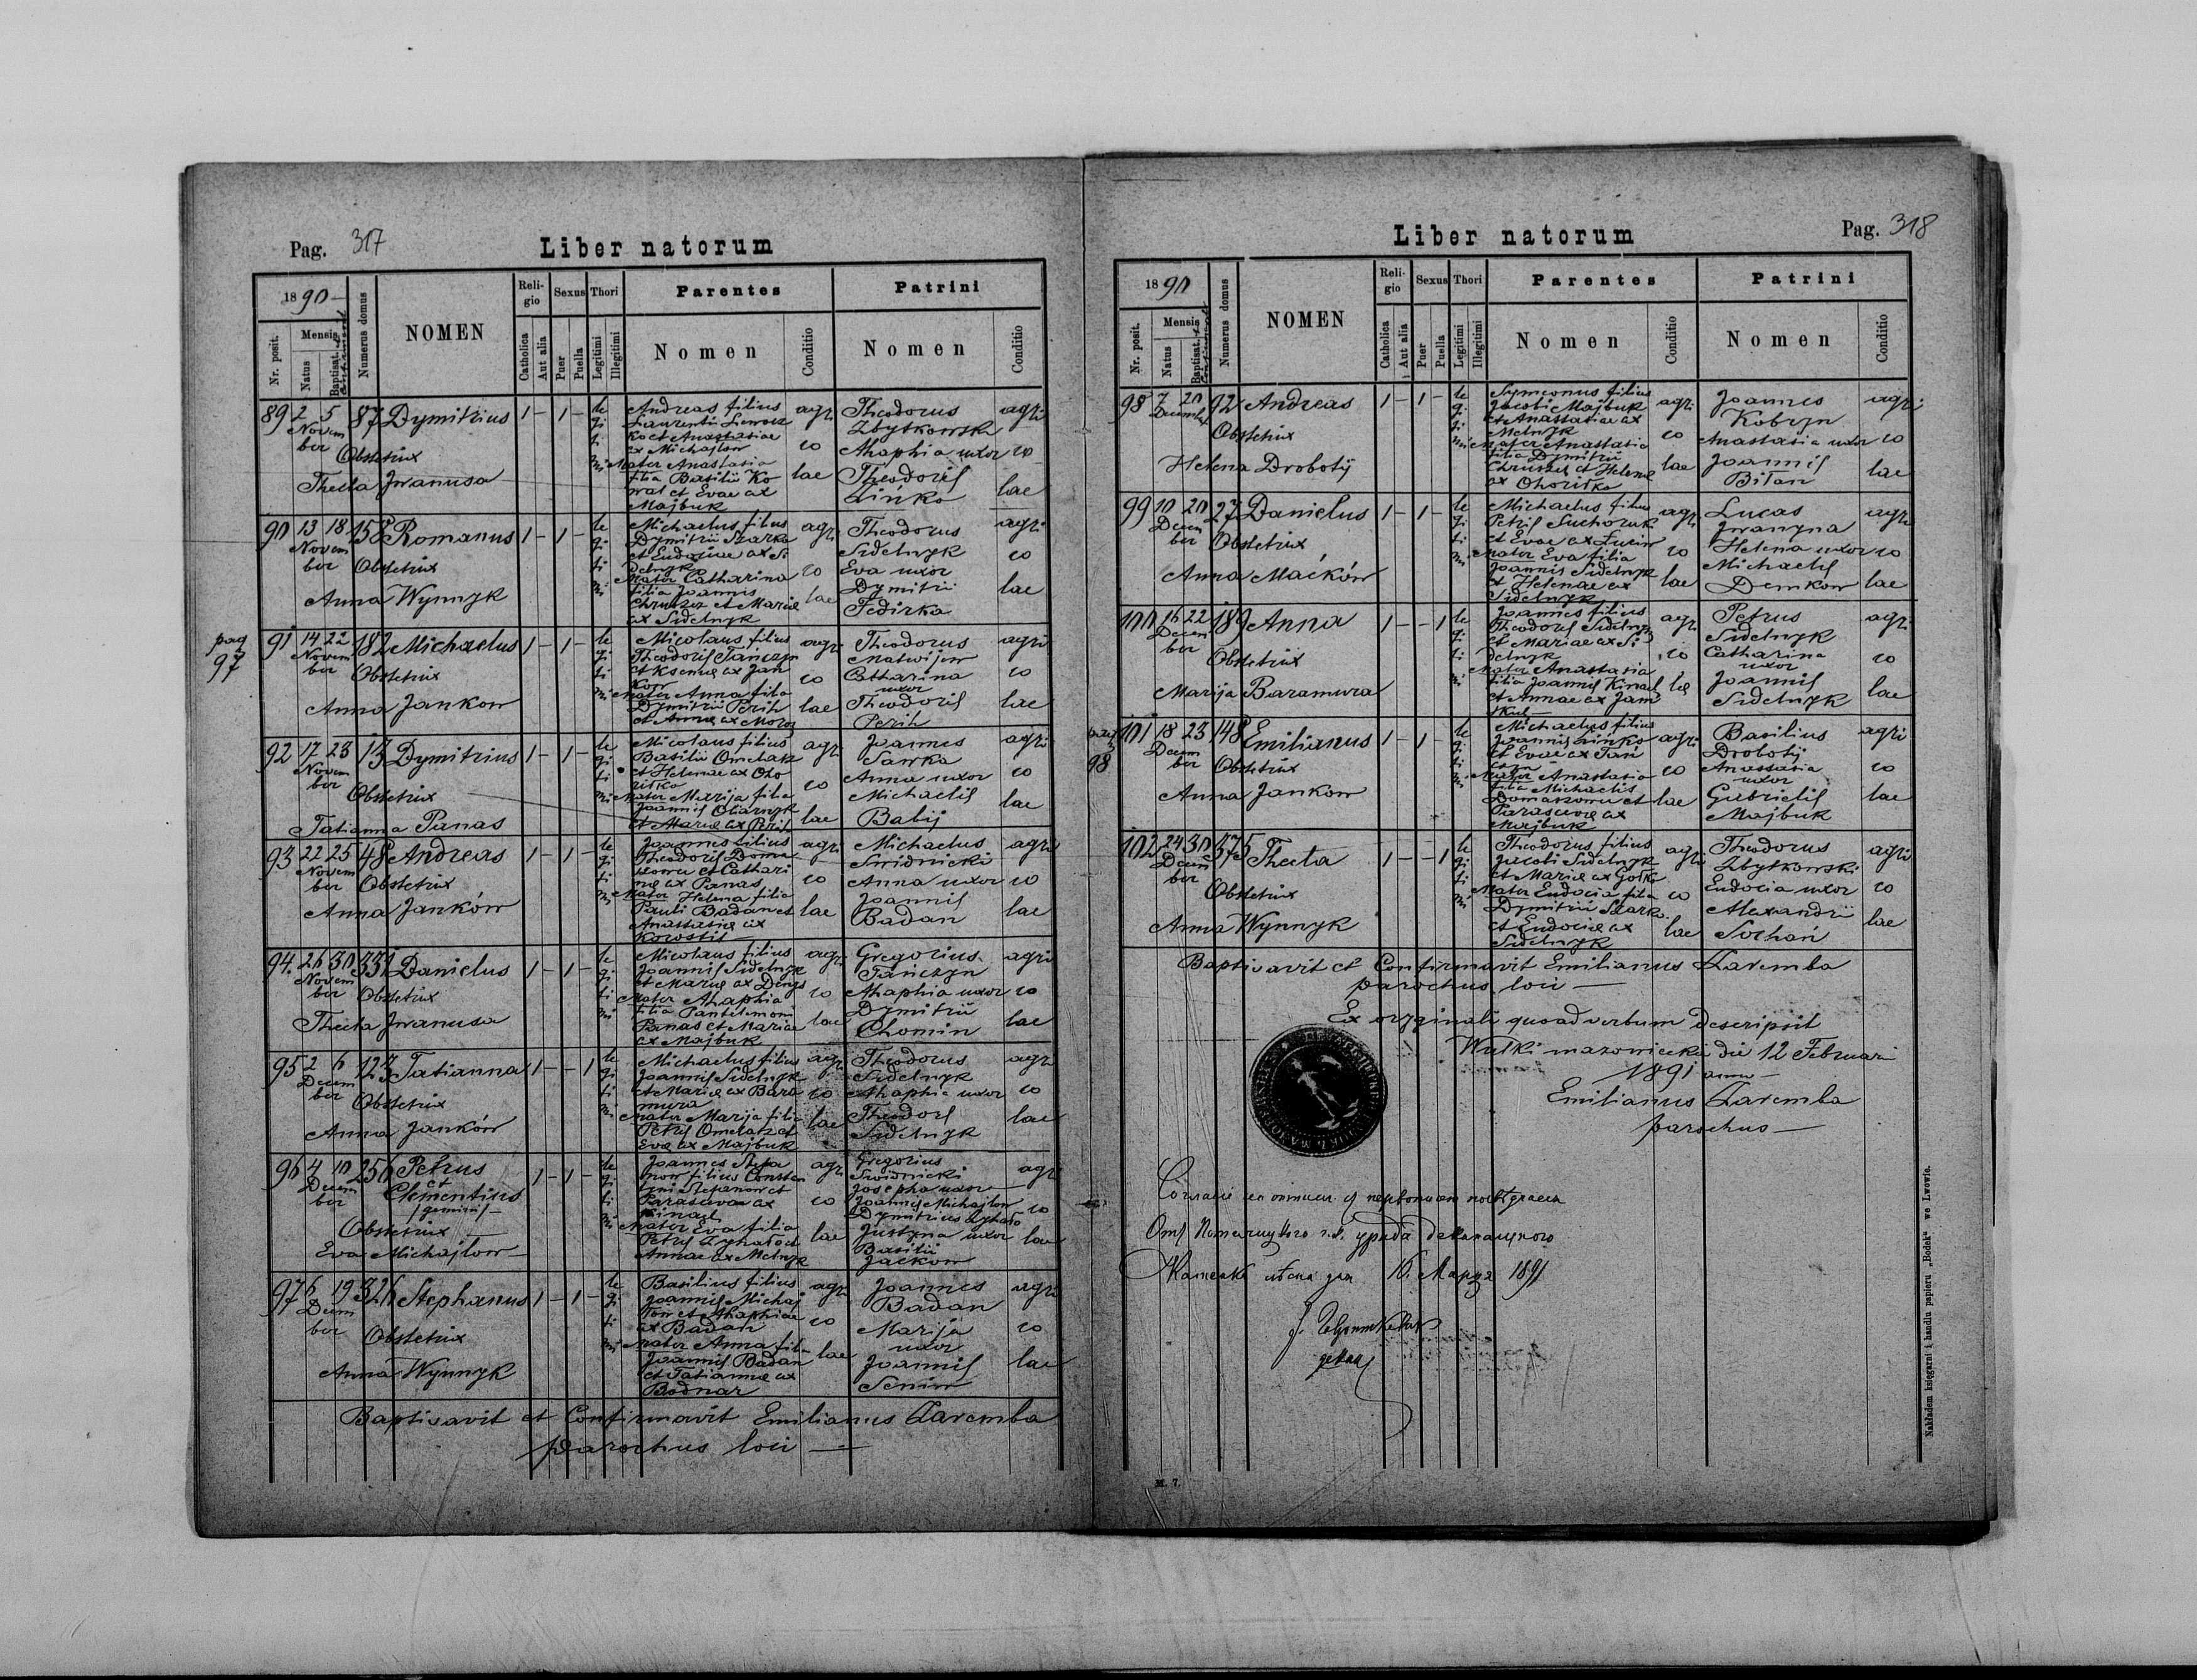 Pag. 317
Liber natorum
1890
Nr. posit.
Mensis
Natus
Baptisat.
Numerus domus
NOMEN
Religio
Catholica
Aut alia
Sexus
Puer
Puella
Thori
Legitimi
Illegitimi
Parentes
Nomen
Conditio
Patrini
Nomen
Conditio
89 2 5 87 Dymitrius 1 – 1 –
Novem
ber
Obstetrix
Thecla Iwanusa
le
gi
ti
mi
Andreas filius
Laurentii
ko et Anastasiae
ex Michajlow
Mater Anastasia
filia Basilii Ko
wal et Evae ex
Majbuk
agri
co
lae
Theodorus
Zbytkowski
Ahaphia uxor
Theodoris
Linko
agri
co
lae
90 13 18 158 Romanus 1 – 1 –
Novem
ber
Obstetrix
Anna Wynnyk
le
gi
ti
mi
Michaelus filius
Dymitrii Szarko
et Eudociae ex Si
delnyk
Mater Catharina
filia Joannis
et Mariae
ex Sidelnyk
agri
co
lae
Theodorus
Sidelnyk
Eva uxor
Dymitrii
Fedirka
agri
co
lae
pag
97
91 14 22 182 Michaelus 1 – 1 –
Novem
ber
Obstetrix
Anna Jankow
le
gi
ti
mi
Nicolaus filius
Theodoris Tańczyn
et Kseniae ex Jan
kow
Mater Anna filia
Dymitrii Perih
et Annae ex Moroz
agri
co
lae
Theodorus
Matwijów
Catharina
uxor
Theodoris
Perih
agri
co
lae
92 17 23 13 Dymitrius 1 – 1 –
Novem
ber
Obstetrix
Tatianna Panas
le
gi
ti
mi
Nicolaus filius
Basilii Omelak
et Helenae ex Oho
ritko
Mater Marija filia
Joannis Oliarnyk
et Mariae ex Perih
agri
co
lae
Joannes
Sawka
Anna uxor
Michaelis
Babij
agri
co
lae
93 22 25 48 Andreas 1 – 1 –
Novem
ber
Obstetrix
Anna Janków
le
gi
ti
mi
Joannes filius
Theodoris Doma
et Cathari
nae ex Panas
Mater Helena filia
Pauli Badan et
Anastasiae ex
Korostil
agri
co
lae
Michaelus
Swidnicki
Anna uxor
Joannis
Badan
agri
co
lae
94. 26 30 331 Danielus 1 – 1 –
Novem
ber
Obstetrix
Thecla Iwanusa
le
gi
ti
mi
Nicolaus filius
Joannis Sidelnyk
et Mariae ex Denys
Mater Ahaphia
filia Pantelemoni
Panas et Mariae
ex Majbuk
agri
co
lae
Gregorius
Tańczyn
Ahaphia uxor
Dymitrii
Chomin
agri
co
lae
95 2 6 Tatianna 1 – – 1
Decem
ber
Obstetrix
Anna Janków
le
gi
ti
mi
Michaelus filius
Joannis Sidelnyk
et Mariae ex Bara
mura
Mater Marija filia
Petri Omelak et
Evae ex Majbuk
agri
co
lae
Theodorus
Sidelnyk
Ahaphia uxor
Theodori
Sidelnyk
agri
co
lae
96 4 10 256 Petrus
et
Clementius
/gemini/
1 – 1 –
Decem
ber
Obstetrix
Eva Michajlow
le
gi
ti
mi
Joannes Stefa
now filius Constan
tini Stefanow et
Parascevae ex
Kinach
Mater Eva filia
Petri Zyhało et
Annae ex Melnyk
agri
co
lae
Gregorius
Swidnicki
Josepha uxor
Joannis Michajlow
Dymitrius Zyhało
Justyna uxor
Basilii
Jackow
agri
co
lae
97 6 19 326 Stephanus 1 – 1 –
Decem
ber
Obstetrix
Anna Wynnyk
le
gi
ti
mi
Basilius filius
Joannis Michaj
low et Ahaphiae
ex Badan
Mater Anna filia
Joannis Badan
et Tatiannae ex
Bodnar
agri
co
lae
Joannes
Badan
Marija
uxor
Joannis
Seniw
agri
co
lae
Baptisavit et Confirmavit Emilianus Zaremba
parochus loci
Liber natorum
Pag. 318
1890
Nr. posit.
Mensis
Natus
Baptisat.
Numerus domus
NOMEN
Religio
Catholica
Aut alia
Sexus
Puer
Puella
Thori
Legitimi
Illegitimi
Parentes
Nomen
Conditio
Patrini
Nomen
Conditio
98 7 20 92 Andreas 1 – 1 –
Decembr
Obstetrix
Helena Drobotij
le
gi
ti
mi
Symeonus filius
Jacobi Majbuk
et Anastasiae ex
Melnyk
Mater Anastasia
filia Dymitrii
et Helenae
ex Ohoritko
agri
co
lae
Joannes
Kobryn
Anastasia uxor
Joannis
Bilan
agri
co
lae
99 10 20 27 Danielus 1 – 1 –
Decem
ber
Obstetrix
Anna Maćków
le
gi
ti
mi
Michaelus filius
Petri Suchoruk
et Evae ex
Mater Eva filia
Joannis Sidelnyk
et Helenae ex
Sidelnyk
agri
co
lae
Lucas
Iwanyna
Helena uxor
Michaelis
Demkow
agri
co
lae
100 16 22 189 Anna 1 – – 1
Decem
ber
Obstetrix
Marija Baramura
le
gi
ti
mi
Joannes filius
Theodori Sidelnyk
et Mariae ex Si
delnyk
Mater Anastasia
filia Joannis Kinach
et Annae ex Jam
agri
co
lae
Petrus
Sidelnyk
Catharina
uxor
Joannis
Sidelnyk
agri
co
lae
pag
98
101 18 23 148 Emilianus 1 – 1 –
Decem
ber
Obstetrix
Anna Jankow
le
gi
ti
mi
Michaelus filius
Joannis Linko
et Evae ex Tań
czyn
Mater Anastasia
filia Michaelis
et
Parascevae ex
Majbuk
agri
co
lae
Basilius
Drobotij
Anastasia
uxor
Gabrielis
Majbuk
agri
co
lae
102 24 30 Thecla 1 – – 1
Decem
ber
Obstetrix
Anna Wynnyk
le
gi
ti
mi
Theodorus filius
Jacobi Sidelnyk
et Mariae ex Gotko
Mater Eudocia filia
Dymitrii Szarko
et Eudociae ex
Sidelnyk
agri
co
lae
Theodorus
Zbytkowski
Eudocia uxor
Alexandri
Sochań
agri
co
lae
Baptisavit et Confirmavit Emilianus Zaremba
parochus loci
Ex oryginali quoad verbum descripsit
Wulki mazowiecki die 12 Februari
1891 anno
Emilianus Zaremba
parochus
Отъ г.к. уряда деканального
дня 16. Марца 1891
декан
M. 7.
Nakładem księgarni i handlu papieru „Bodek“ we Lwowie.